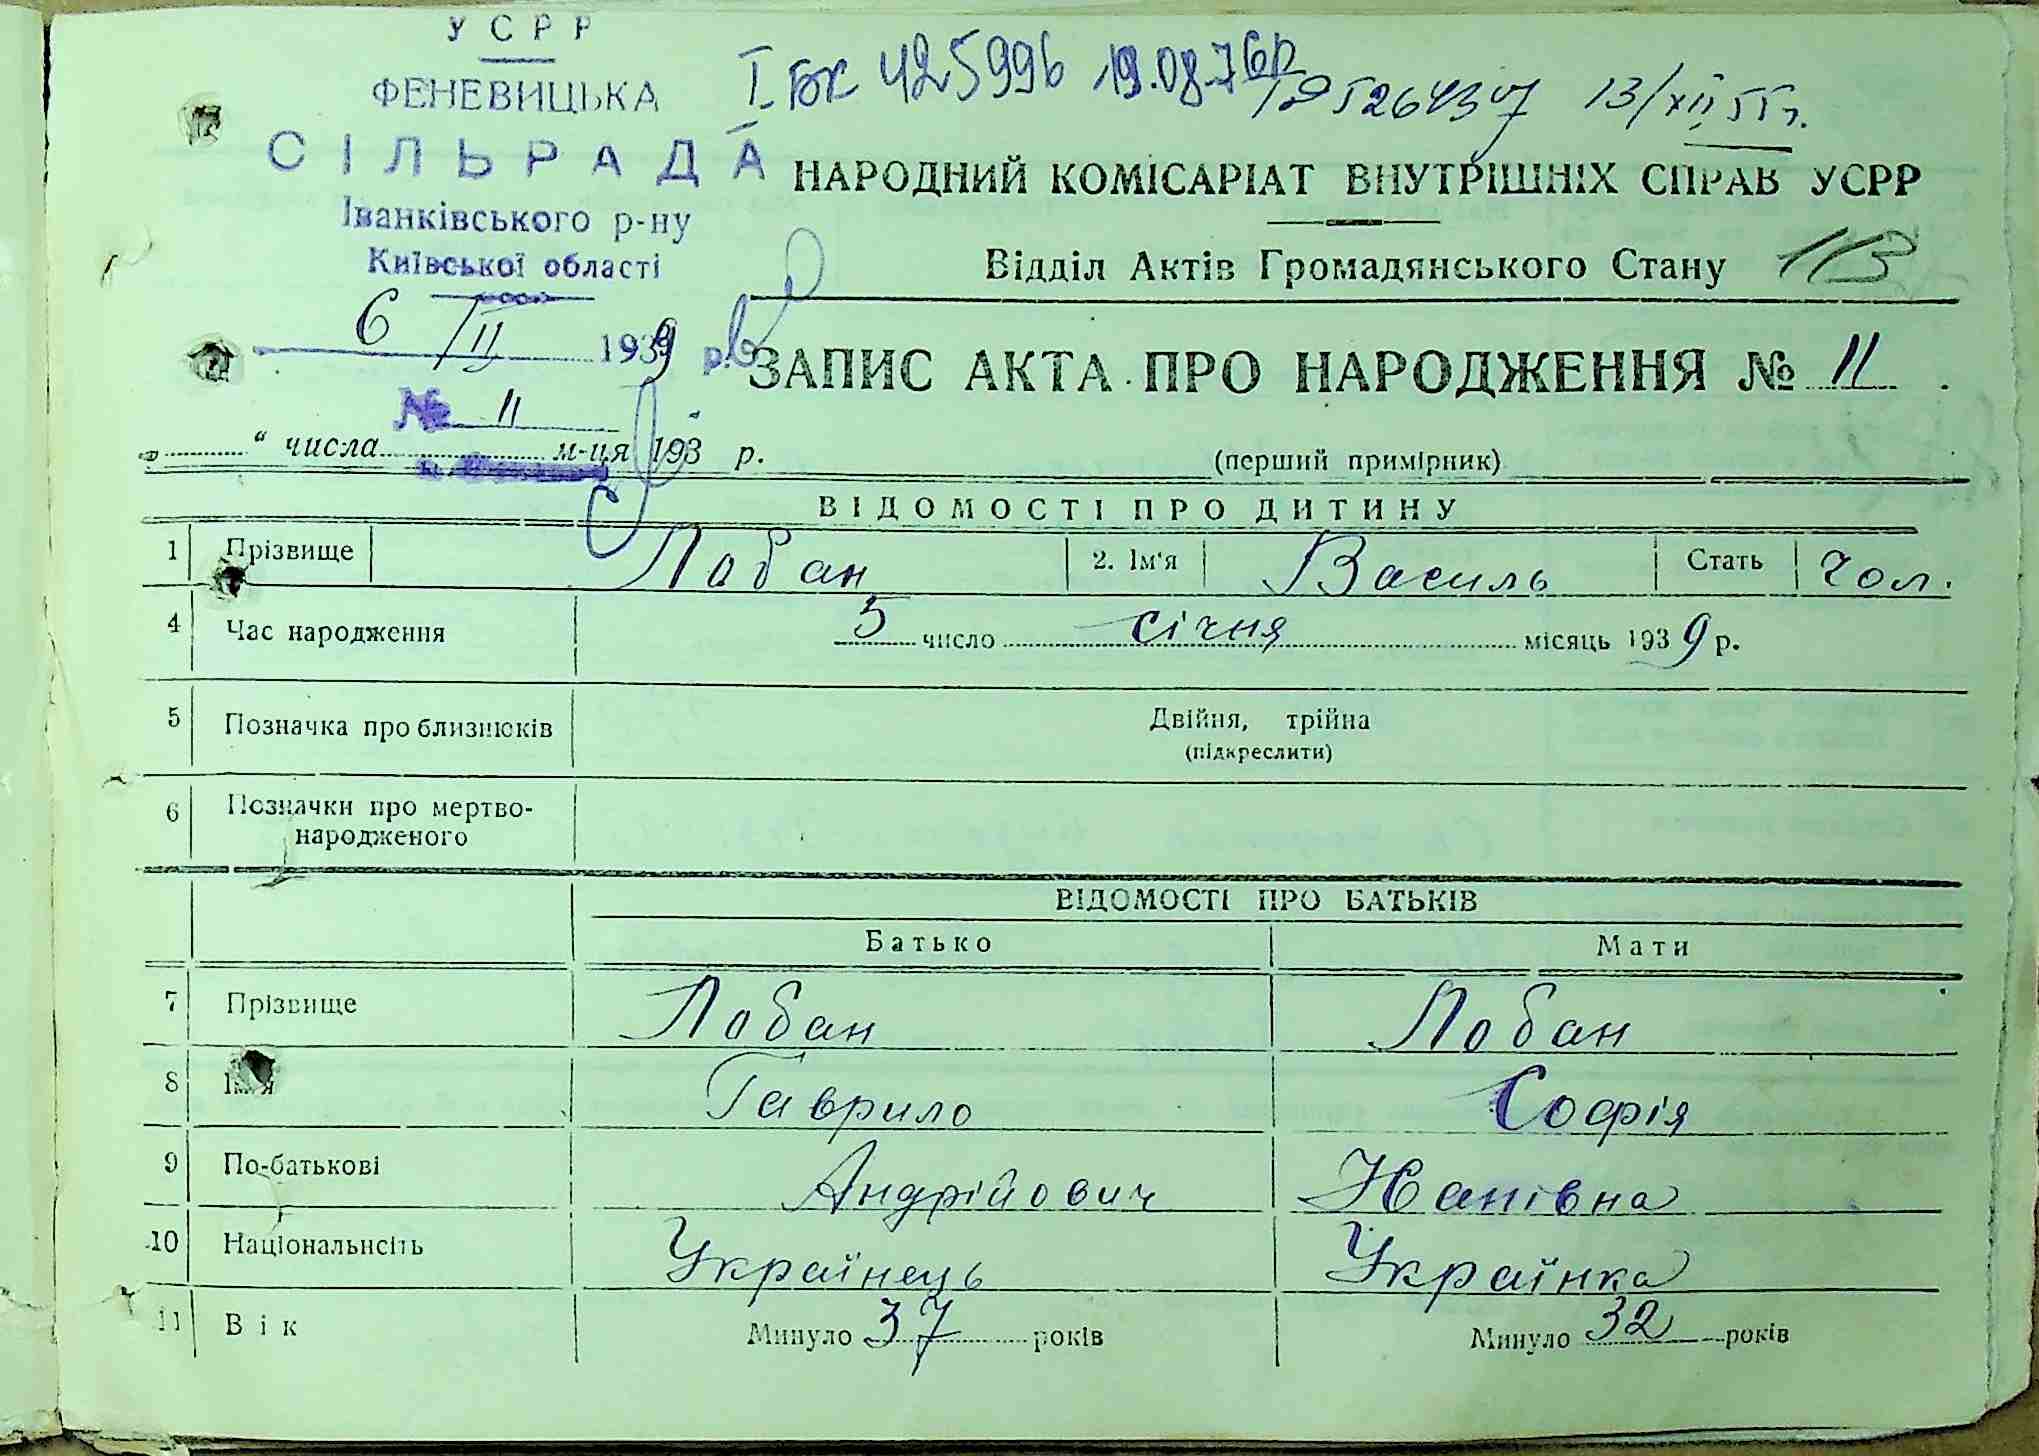 УСРР
ФЕНЕВИЦЬКА
СІЛЬРАДА
Іванківського р-ну
Київської області
6 / II 1939 р.
№ 11
I БК 425996 19.08.76р
526437 13/XII 55 г.
НАРОДНИЙ КОМІСАРІАТ ВНУТРІШНІХ СПРАВ УСРР
Відділ Актів Громадянського Стану 113
ЗАПИС АКТА ПРО НАРОДЖЕННЯ № 11
“ числа м-ця 193 р. (перший примірник)
ВІДОМОСТІ ПРО ДИТИНУ
1 Прізвище Лобан 2. Ім'я Василь Стать Чол.
4 Час народження 5 число січня місяць 1939 р.
5 Позначка про близнюків Двійня, трійна
(підкреслити)
6 Позначки про мертво-
народженого
ВІДОМОСТІ ПРО БАТЬКІВ
Батько Мати
7 Прізвище Лобан Лобан
8 Ім'я Гаврило Софія
9 По-батькові Андрійович
10 Національнсіть Українець Українка
11 Вік Минуло 37 років Минуло 32 років